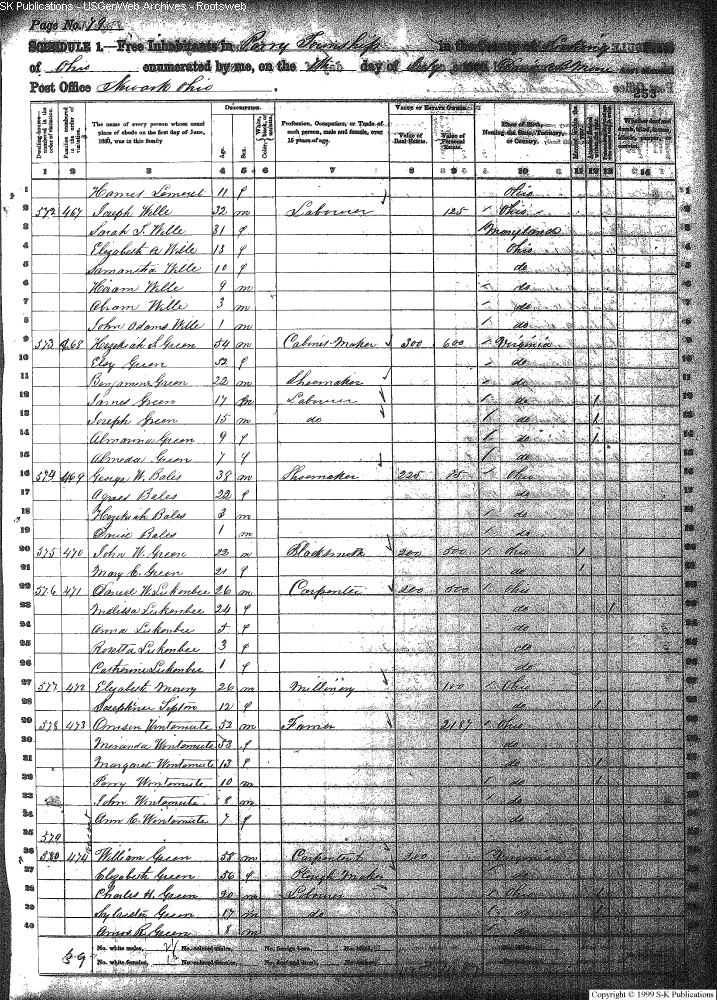 SK Publications - USGenWeb Archives - Rootsweb
Page No. 79
SCHEDULE 1.—Free Inhabitants in Perry Township in the County of Licking State
of Ohio enumerated by me, on the day of July
Post Office Newark Ohio
Dwelling-houses numbered in the order of visitation. Families numbered in the order of visitation. The name of every person whose usual place of abode on the first day of June, 1860, was in this family. Description. Age. Sex. Color Profession, Occupation, or Trade of each person, male and female, over 15 years of age. Value of Estate Owned. Value of Real Estate. Value of Personal Estate. Place of Birth, Naming the State, Territory, or Country.
1 2 3 4 5 6 7 8 9 10 11 12 13 14
1 11 f Ohio
2 572 467 Joseph Wille 32 m Labourer 125 Ohio
3 Sarah J. Wille 31 f Maryland
4 Elizabeth A Wille 13 f Ohio
5 Samantha Wille 10 f do
6 Hiram Wille 9 m do
7 Abram Wille 3 m do
8 John Adams Wille 1 m do
9 573 468 Hezekiah S Green 54 m Cabinet Maker 300 600 Virginia
10 Elcy Green 52 f do
11 Benjamine Green 22 m Shoemaker do
12 James Green 17 m Labourer do 1
13 Joseph Green 15 m do do 1
14 Almarina Green 9 f do 1
15 Almeda Green 7 f do
16 574 469 George W. Bales 38 m Shoemaker 225 75 Ohio
17 Agnes Bales 22 f do
18 Hezekiah Bales 3 m do
19 Bales 1 m do
20 575 470 John W. Green 22 m Blacksmith 200 500 Ohio 1
21 Mary C. Green 21 f do 1
22 576 471 Daniel W. Lukenbee 26 m Carpenter 200 500 Ohio
23 Melissa Lukenbee 24 f do 1
24 Anna Lukenbee 5 f do
25 Rosetta Lukenbee 3 f do
26 Catherine Lukenbee 1 f do
27 577 472 Elizabeth Mowry 26 m Millinery 100 Ohio
28 Josephine Tipton 12 f do 1
29 578 473 Wintemute 52 m Farmer 2187 Ohio
30 Miranda Wintemute 53 f do
31 Margaret Wintemute 13 f do 1
32 Perry Wintemute 10 m do
33 John Wintemute 8 m do
34 Ann C. Wintemute 7 f do
35 579
36 580 474 William Green 58 m Carpenter & 200 Virginia
37 Elizabeth Green 56 f Plough Maker do
38 Charles H. Green 20 m Labourer Ohio
39 Sylvester Green 17 m do do 1
40 Amos R. Green 8 m do
No. white males, No. colored males, No. foreign born,
No. white females, No. colored females,
Copyright © 1999 S-K Publications